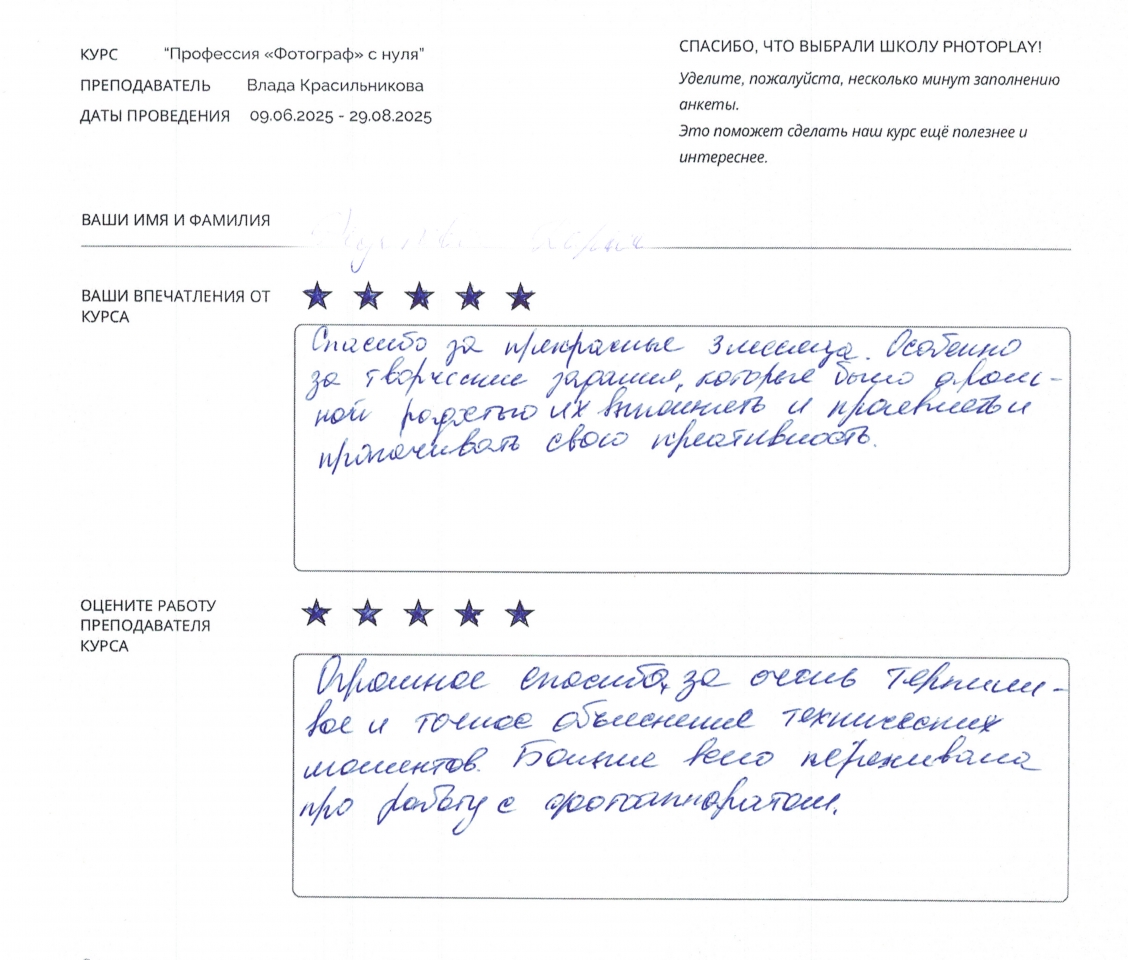 КУРС "Профессия «Фотограф» с нуля"
ПРЕПОДАВАТЕЛЬ Влада Красильникова
ДАТЫ ПРОВЕДЕНИЯ 09.06.2025 - 29.08.2025
СПАСИБО, ЧТО ВЫБРАЛИ ШКОЛУ PHOTOPLAY!
Уделите, пожалуйста, несколько минут заполнению
анкеты.
Это поможет сделать наш курс ещё полезнее и
интереснее.
ВАШИ ИМЯ И ФАМИЛИЯ
ВАШИ ВПЕЧАТЛЕНИЯ ОТ
КУРСА
Спасибо за прекрасные 3 месяца. Особенно
за творческие задания, которые было огром-
ной радостью их выполнять и проявлять и
прокачивать свою креативность.
ОЦЕНИТЕ РАБОТУ
ПРЕПОДАВАТЕЛЯ
КУРСА
Огромное спасибо, за очень терпели-
вое и точное объяснение технических
моментов. Больше всего переживала
про работу с фотоаппаратом.